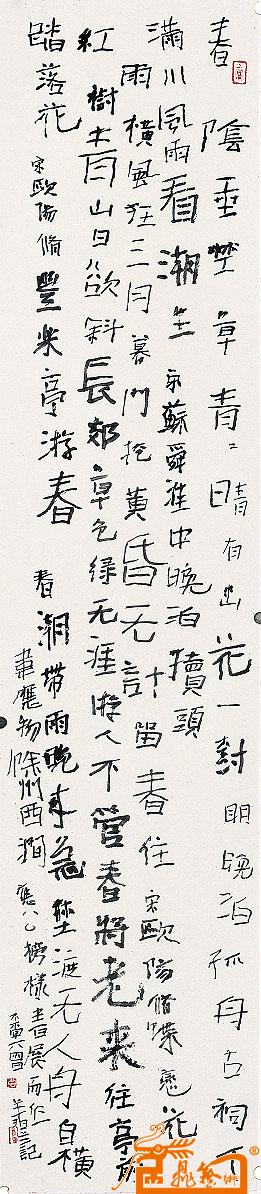 春陰垂埜草青〻時有幽花一樹明晚泊孤舟古祠下
滿川風雨看潮生 宋蘇舜淮中晚泊犢頭
雨橫風狂三月暮門掩黃昏无計留春住 宋歐陽脩蝶戀花
紅樹青山日欲斜長郊草色綠无涯游人不管春將老來往亭前
踏落花 宋歐陽脩豐樂亭游春 春潮帶雨晚来急埜渡无人舟自橫
韋應物滁州西澗 應八〇榜樣書展而作
記